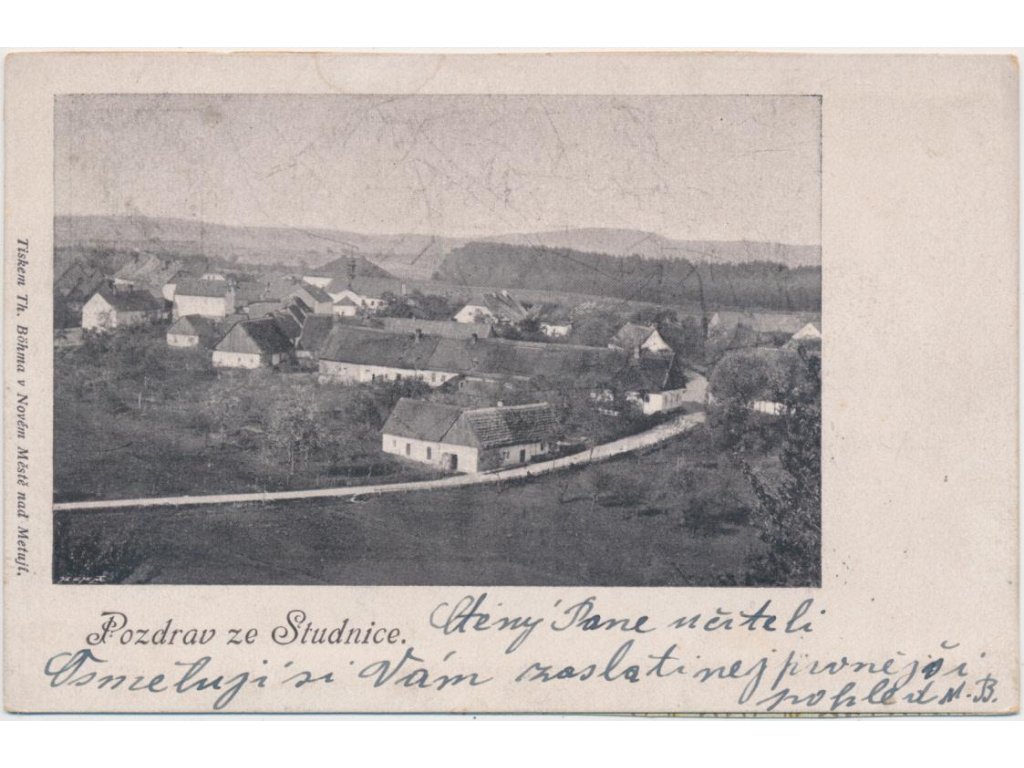 Tiskem Th. Böhma v Novém Městě nad Metují.
Pozdrav ze Studnice.
Ctěný Pane učiteli
Osmeluji si Vám zaslati nejprvnější
pohled M. B.